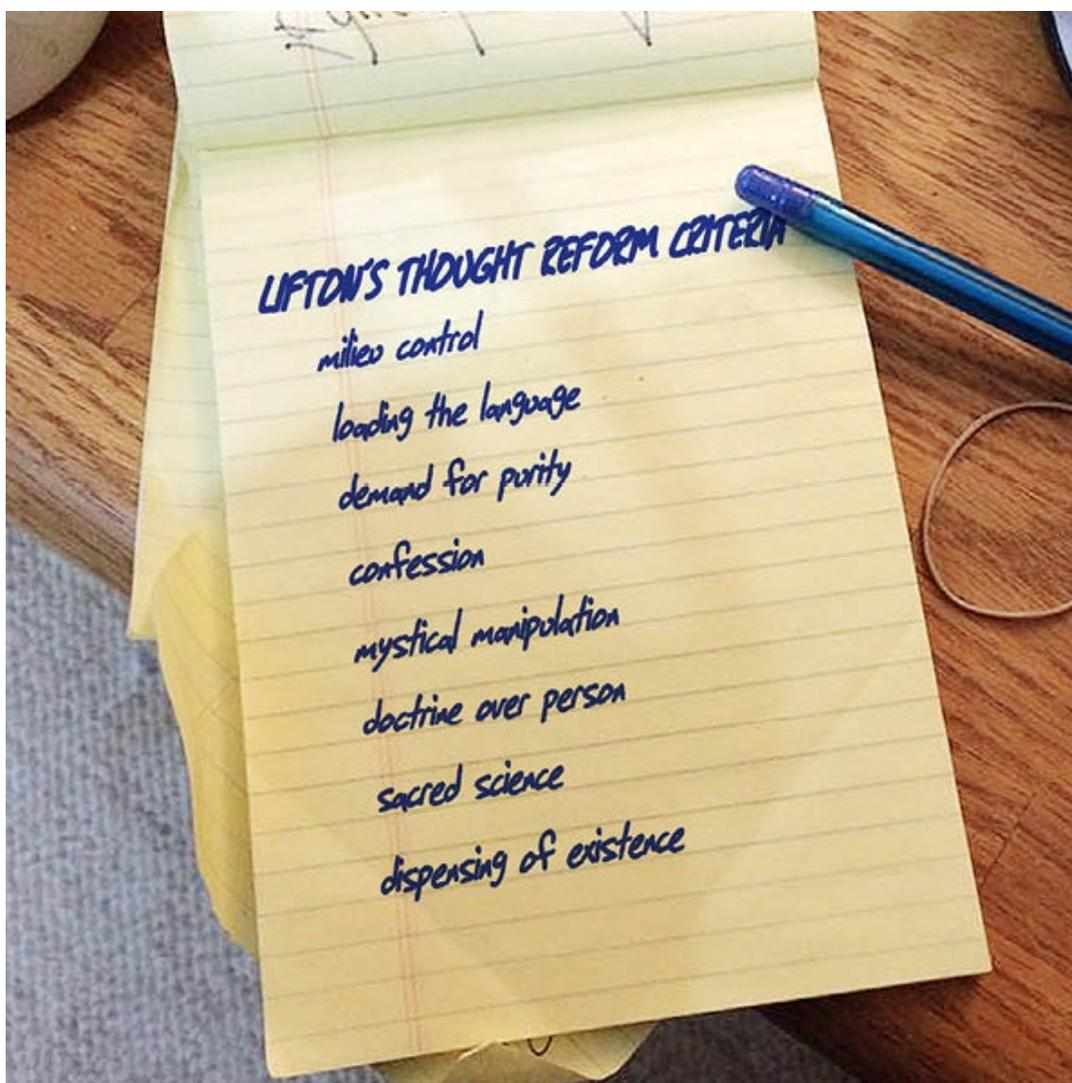 LIFTON'S THOUGHT REFORM CRITERIA
milieu control
loading the language
demand for purity
confession
mystical manipulation
doctrine over person
sacred science
dispensing of existence